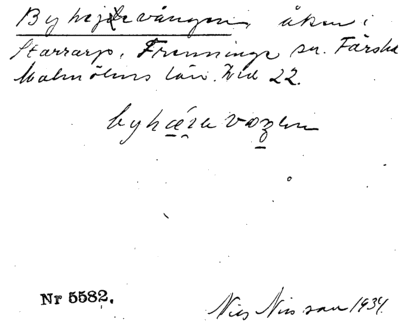 Byhejrevången, åker i
Starrarp, Frenninge sn. Färs hd
Malmöhus län. Bld 22.
Nr 5582.
Nils Nilsson 1934.